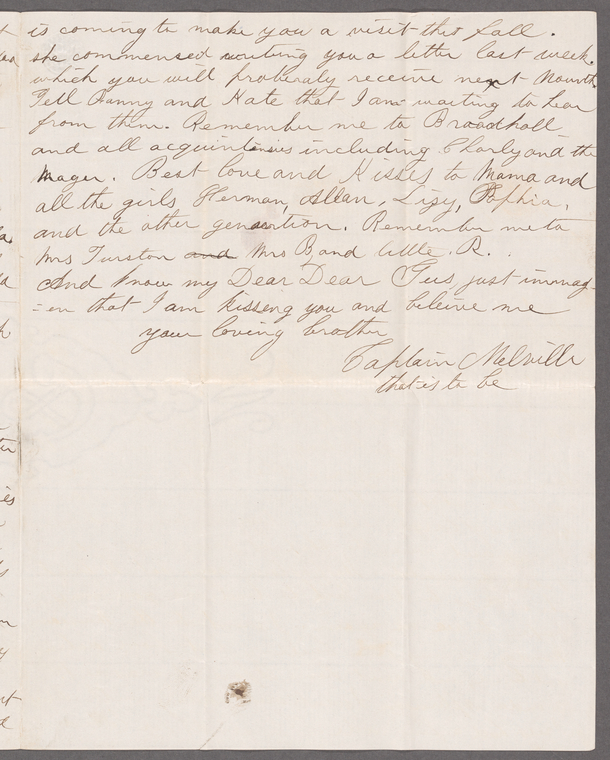 is coming to make you a visit this fall.
she commensed writing you a letter last week.
which you will proberaly receive next Month
Tell Fanny and Kate that I am waiting to hear
from them. Remember me to Broadhall
and all acquintences including Charly and the
Mager. Best love and Kisses to Mama and
all the girls Herman, Allan, Lizy, Sophia,
and the other genaration. Remember me to
Mrs Turston and Mrs B and little R.
And know my Dear Dear Gus, just immag-
=en that I am kisseng you and beleive me
your loving brother
Captain Melville
that is to be